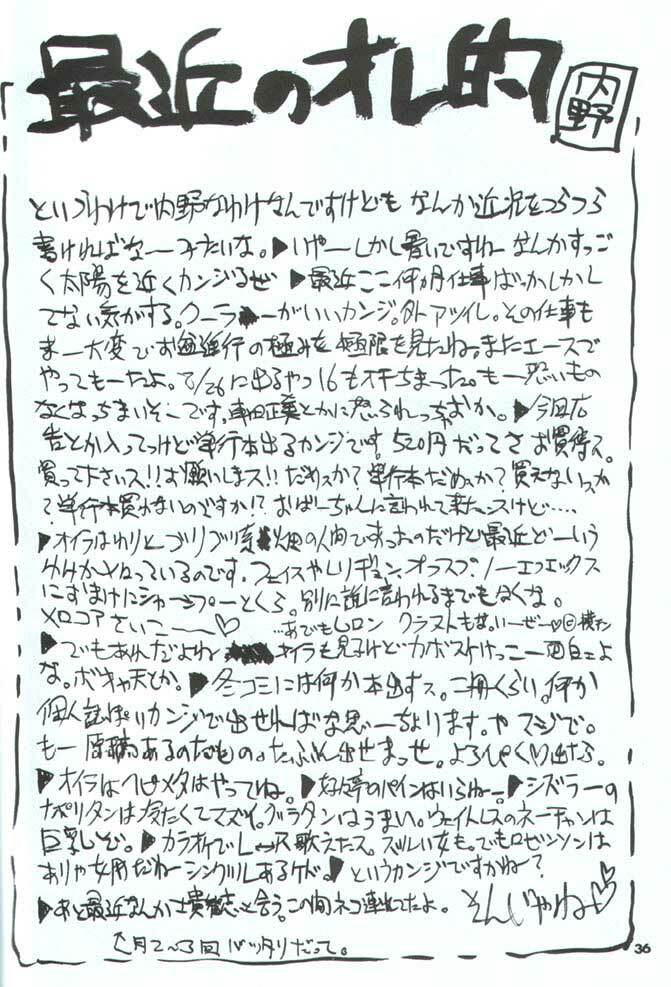 最近のオレ的
内野
というわけで内野なわけなんですけども なんか近況をつらつら
書ければなーみたいな。▶いやーしかし暑いですねーなんかすっご
く太陽を近くカンジるぜ ▶最近ここ何ヵ月仕事ばっかしかし
てない気がする。クーラーがいいカンジ。外アツイし。その仕事も
まー大変です 進行の極みを極限を見たね。またエースで
やってもーたよ。8/26に出るやつ16もオチちまった。もー恐いもの
なくなっちまいそーです。車田正美とかに怒られっちおか。▶今回広
告とか入ってっけど単行本出るカンジです。520円だってさ お買得ス。
買って下さいス!!お願いしまス!! だめスか?単行本だめスか?買えないスか
?単行本買わないのですか!? おばーちゃんに言われて来たスけど……
▶オイラはわりとゴリゴリ 畑の人間ですったのだけど最近どーいう
わけか っているのです。フェイスやレリヂョン、オフスプ、ノーエフエックス
におまけにシャープーとくら。別に誰に言われるまでもなくな。
メロコアさいこーー♡ …あでもムロン クラストも好いーぜー♡
▶でもあれだよね オイラも見っけどカボスけっこー面白えよ
な。ボキャ天とか。▶冬コミには何か本出すス。二冊くらい。何か
個人誌ぽいカンジで出せればな思ーちょります。や マジで。
もー原稿あるのだもの。たぶん出せまっせ。よろぴく♡出たら。
▶オイラはヘビメタはやってねえ。▶好評のパインはいらねー。▶シズラーの
ナポリタンは冷たくてマズイ。グラタンはうまい。ウェイトレスのネーチャンは
巨乳 。▶カラオケでレース歌えたス。ズルい女も。でもロビンソンは
ありゃ女用だねーシングルしあるケド。▶というカンジですかねー?
▶あと最近なんか士貴智志と会う。この間ネコ連れてたよ。そんじゃね♡♡
月2〜3回バッタリだって。
36